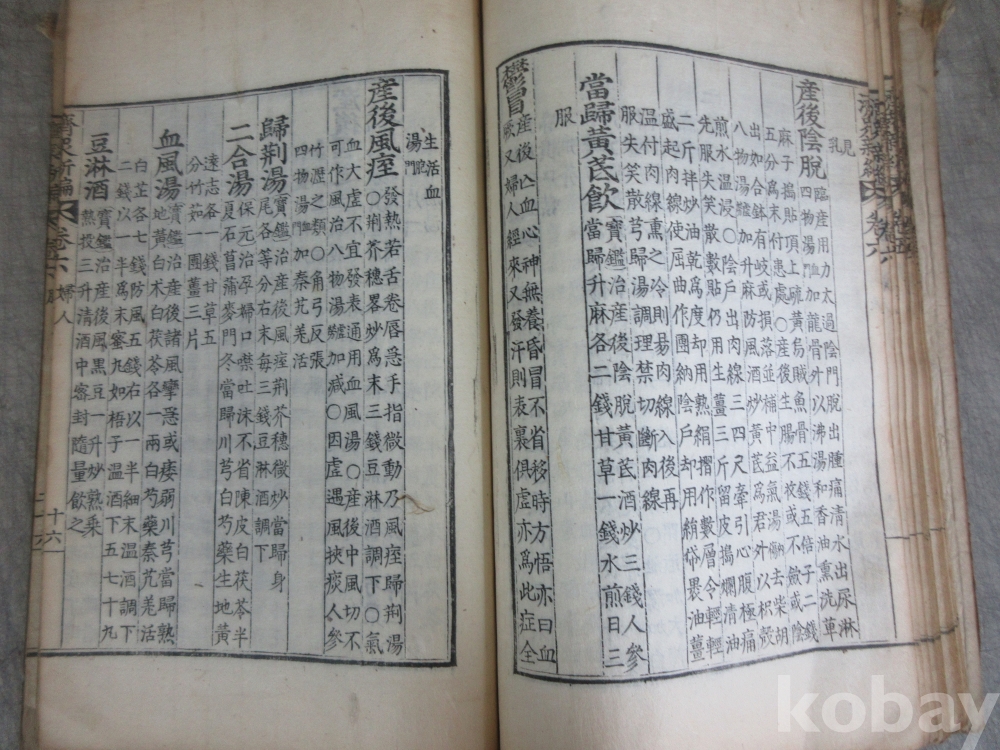 見乳
産後陰脫
臨産用力太過陰門脫出腫痛清水出尿淋
四物湯加龍骨外以沸湯和香油熏洗草
麻子搗貼頂上硫黃烏賊魚骨五錢五倍子二錢
五分爲末付患處〇産後生腸不收或不斂或陰
出如合鉢有岐或損落並補中益氣湯去柴胡
八物湯加升麻防風酒炒黃芪爲君外以枳殼
煎水溫浸〇陰戶出肉線三四尺牽引心腹極痛
先服失笑散數貼仍用生薑三斤留皮搗爛清油
二斤拌炒油乾爲度却用熟絹摺作數層令輕輕
盛起肉線使屈曲作團納陰戶却用綃帒褁油薑
溫付肉線熏之冷則易肉線入後再
服失笑散芎歸湯調理禁切斷肉線
當歸黃芪飮
寶鑑治産後陰脫黃芪酒炒三錢人參
當歸升麻各二錢甘草一錢水煎日三
服
鬱冒
産後亡血心神無養昏冒不省移時方悟亦曰血
厥又婦人經來又發汗則表裏俱虛亦爲此症全
生活血
湯
産後風痓
發熱若舌卷唇急手指微動乃風痓歸荆湯
〇荆芥穗畧炒爲末三錢豆淋酒調下〇氣
血大虛不宜發表通用血風湯〇産後中風切不
可作風治八物湯加減〇因虛遇風挾痰人參
竹瀝之類〇角弓反張
四物湯加秦艽羌活
歸荆湯
寶鑑治産後風痓荆芥穗微炒當歸身
尾各等分右末每三錢豆淋酒調下
二合湯
保元治孕婦口噤吐沫不省陳皮白茯苓半
夏石菖蒲麥門冬當歸川芎白芍藥生地黃
遠志各一錢甘草五
分竹茹一團薑三片
血風湯
寶鑑治産後諸風攣急或痿弱川芎當歸熟
地黃白朮白茯苓各一兩白芍藥秦艽羌活
白芷各七錢防風五錢右以一半細末溫酒調下
二錢以一半爲末蜜丸如梧子溫酒下五七十丸
豆淋酒
寶鑑治産後風黑豆一升炒熟乘
熱投三升清酒中密封隨量飮之
濟衆新編 卷六 婦人 十六
kobay